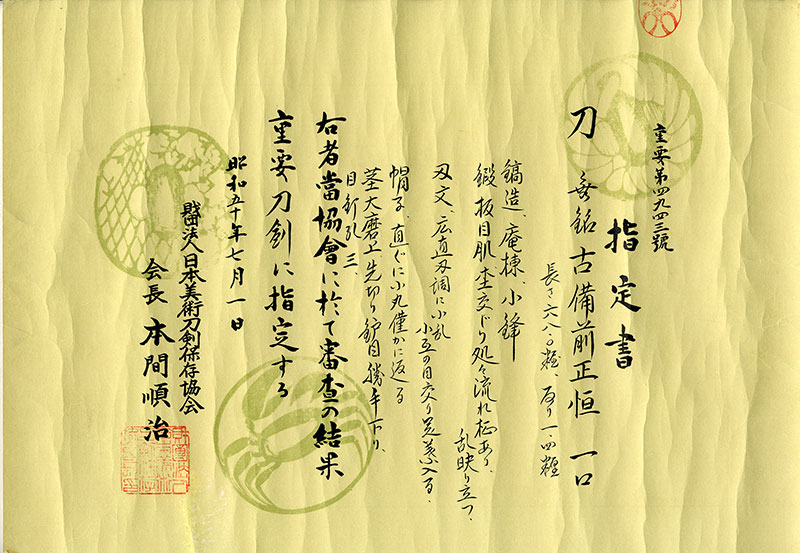 重要第四九四三號
指定書
刀 無銘 古備前正恒 一口
長さ六八・〇糎 反り一・四糎
鎬造、庵棟、小鋒
鍛 板目肌杢交じり処々流れ柾あり、
乱映り立つ、
刃文、広直刃調に小乱
小互の目交り足葉入る、
帽子、直ぐに小丸僅かに返る
茎 大磨上 先切り 鑢目 勝手下り、
目釘孔 三、
右者當協會に於て審査の結果
重要刀剣に指定する
昭和五十年七月一日
財団法人日本美術刀剣保存協会
会長 本間順治